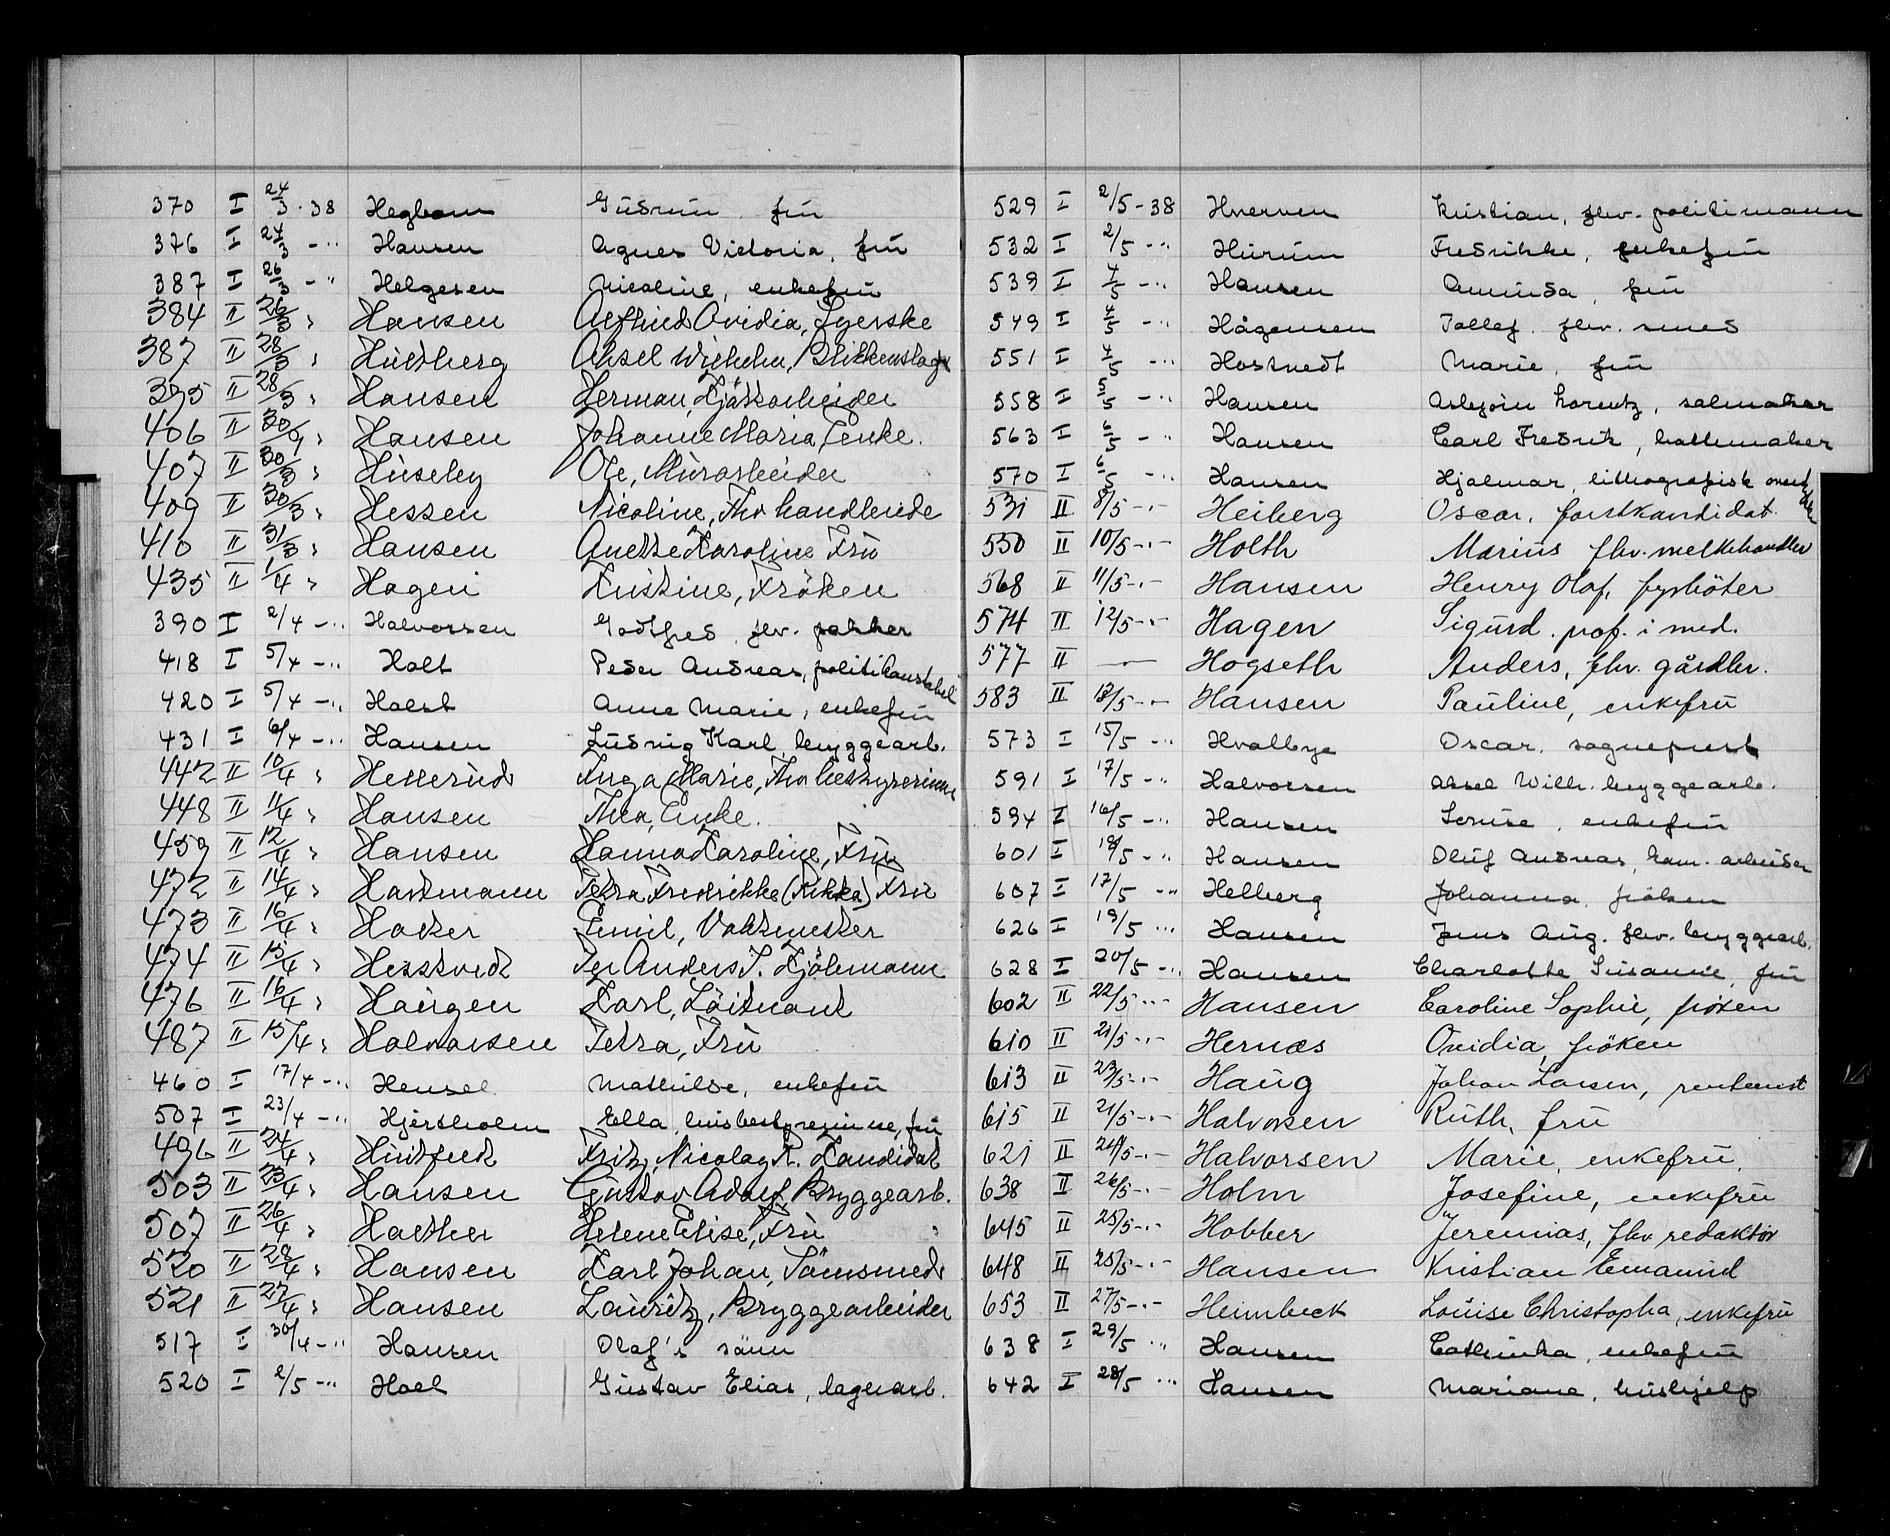 370 I 24/3 - 38 Hegbom Gudrun fru
376 I 24/3 - " Hansen Agnes Victoria, fru
387 I 26/3 - " Helgesen Nicoline, enkefru
384 II 26/3 " Hansen Alfhild Ovidia, Syerske
387 II 28/3 " Hultberg Aksel Wilhelm, Blikkenslag
395 II 28/3 " Hansen Herman,
406 II 30/ " Hansen Johanne Maria, Enke.
407 II 30/3 " Huseby Ole, Murarbeider
409 II 30/3 " Hessen Nicoline, Fhv handlende
410 II 31/3 " Hansen Anette Karoline Fru
435 II 1/4 " Hagen Kristine, Frøken
390 I 2/4 - " Halvorsen Godtfred, fhv. pakker
418 I 5/4 - " Holt Peder Andreas, politikonstabel
420 I 5/4 - " Holst Anne Marie, enkefru
431 I 6/4 - " Hansen Ludvig Karl, bryggearb.
442 II 10/4 " Hellerud Inga Marie, Fhv bestyrerinne
448 II 11/4 " Hansen Thea, Enke.
459 II 12/4 " Hansen Hanna Karoline, Fru
472 II 14/4 " Hartmann Petra Fredrikke (Rikka) Fru
473 II 16/4 " Haker Emil, Vaktmester
474 II 15/4 " Hesstvedt Per Anders J. Kjölemann
476 II 16/4 " Haugen Karl, Löitnant
487 II 15/4 " Halvorsen Petra, Fru
460 I 17/4 - " Hensel Mathilde, enkefru
507 I 23/4 - " Hjertholm Ella, husbestyrerinne, fru
496 II 24/4 " Huitfeldt Fritz, Nicolay R. Kandidat
503 II 23/4 " Hansen Gustav Adolf Bryggearb.
507 II 26/4 " Helene Elise, Fru
520 II 28/4 " Hansen Karl Johan,
521 II 27/4 " Hansen Lauritz, Bryggearbeider
517 I 30/4 - " Hansen Olaf's sønn
520 I 2/5 - " Hoel Gustav Elias, lagerarb.
529 I 2/5 - 38 Hverven Kristian, fhv. politimann
532 I 2/5 - " Hurum Fredrikke, enkefru
539 I 4/5 - " Hansen Aminda, fru
549 I 4/5 - " Hågensen Tollef. fhv. smed
551 I 4/5 - " Hostvedt Marie, fru
558 I 5/5 - " Hansen Asbjörn Lorentz, salmaker
563 I 6/5 - " Hansen Carl Fredrik, hattemaker
570 I 6/5 - " Hansen Hjalmar, lithografisk
531 II 9/5 - " Heiberg Oscar, forstkandidat
550 II 10/5 - " Holth Marius fhv. melkehandler
568 II 11/5 - " Hansen Henry Olaf, fyrbøter
574 II 12/5 - " Hagen Sigurd. prof. i med.
577 II — Hogseth Anders, fhv. gårdbr.
583 II 13/5 - " Hansen Pauline, enkefru
573 I 15/5 - " Hvalbye Oscar, sogneprest
591 I 17/5 - " Halvorsen Aksel Wilh. bryggearb.
594 I 16/5 - " Hansen Louise, enkefru
601 I 18/5 - " Hansen Oluf Andreas, kom. arbeider
607 I 17/5 - " Helberg Johanna, frøken
626 I 19/5 " Hansen Jens Aug. fhv. bryggearb.
628 I 20/5 - " Hansen Charlotte Susanne, fru
602 II 22/5 - " Hansen Caroline Sophie, frøken
610 II 21/5 - " Hernæs Ovidia, frøken
613 II 23/5 - " Haug Johan Larsen,
615 II 21/5 - " Halvorsen Ruth, fru
621 II 24/5 - " Halvorsen Marie, enkefru.
638 II 26/5 - " Holm Josefine, enkefru
645 II 25/5 - " Hobber Jeremias, fhv. redaktør
648 II 25/5 - " Hansen Kristian Emanuel
653 II 27/5 - " Heimbeck Louise Christopha, enkefru
638 I 29/5 " Hansen Cathinka, enkefru
642 I 28/5 " Hansen Mariane, hushjelp